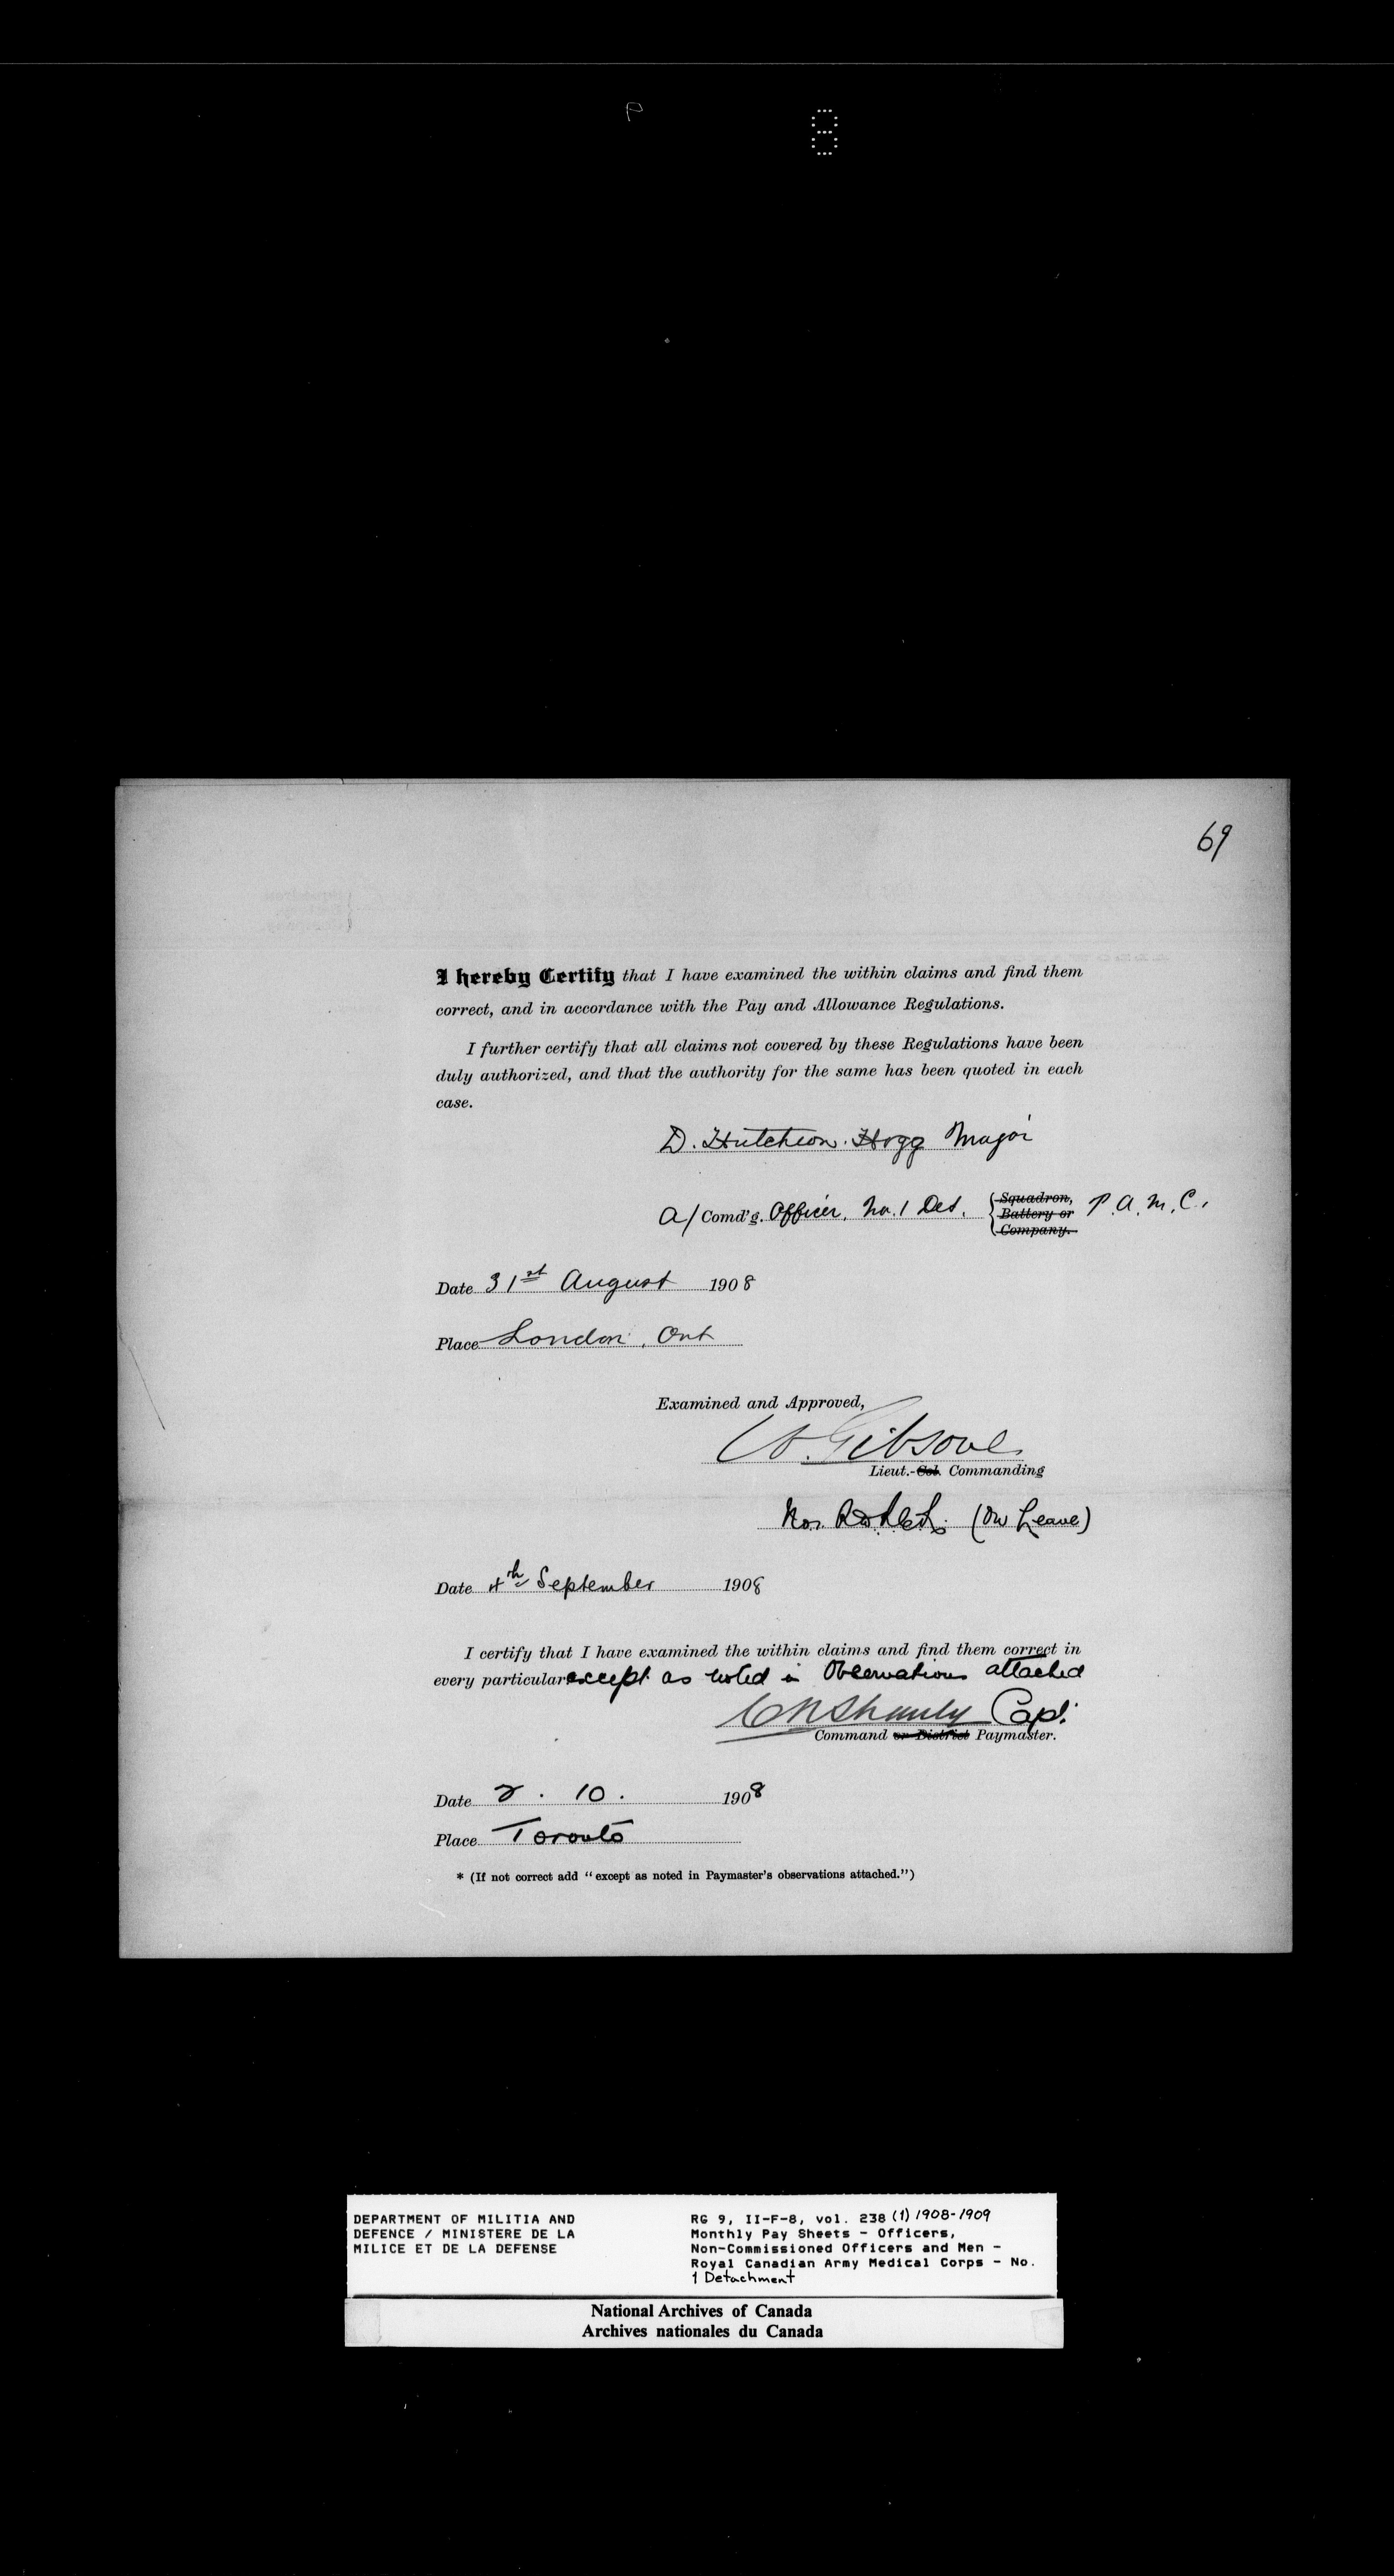 8
69
I hereby Certify that I have examined the within claims and find them
correct, and in accordance with the Pay and Allowance Regulations.
I further certify that all claims not covered by these Regulations have been
duly authorized, and that the authority for the same has been quoted in each
case.
D. Hutchison Hogg Major
A/ Comd'g. Officer, No. 1 Det. Squadron, Battery or Company. P. A. M. C.
Date 31st August 1908
Place London, Ont
Examined and Approved,
Gibsone
Lieut.-Col. Commanding
(on Leave)
Date 4th September 1908
I certify that I have examined the within claims and find them correct in
every particular except as noted in Observations attached
C N Shanly Capt.
Command or District Paymaster.
Date 2. 10. 1908
Place Toronto
* (If not correct add "except as noted in Paymaster's observations attached.")
DEPARTMENT OF MILITIA AND
DEFENCE / MINISTERE DE LA
MILICE ET DE LA DEFENSE
RG 9, II-F-8, vol. 238 (1) 1908-1909
Monthly Pay Sheets - Officers,
Non-Commissioned Officers and Men -
Royal Canadian Army Medical Corps - No.
1 Detachment
National Archives of Canada
Archives nationales du Canada